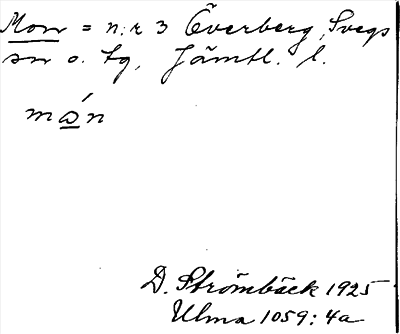 Mon = n:r 3 Överberg, Svegs
sn o. tg, Jämtl. l.
mǻn
D. Strömbäck 1925
Ulma 1059: 4a